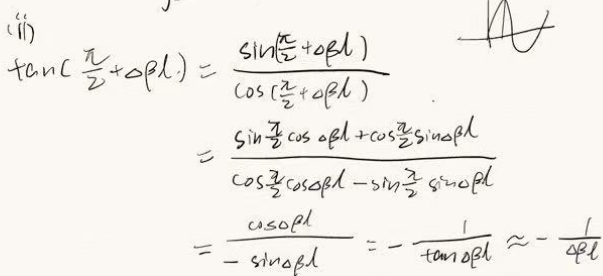 (ii)
tan(π/2 + Δβl) = sin(π/2 + Δβl) / cos(π/2 + Δβl)
= (sin π/2 cos Δβl + cos π/2 sin Δβl) / (cos π/2 cos Δβl − sin π/2 sin Δβl)
= cos Δβl / − sin Δβl = − 1 / tan Δβl ≈ − 1 / Δβl